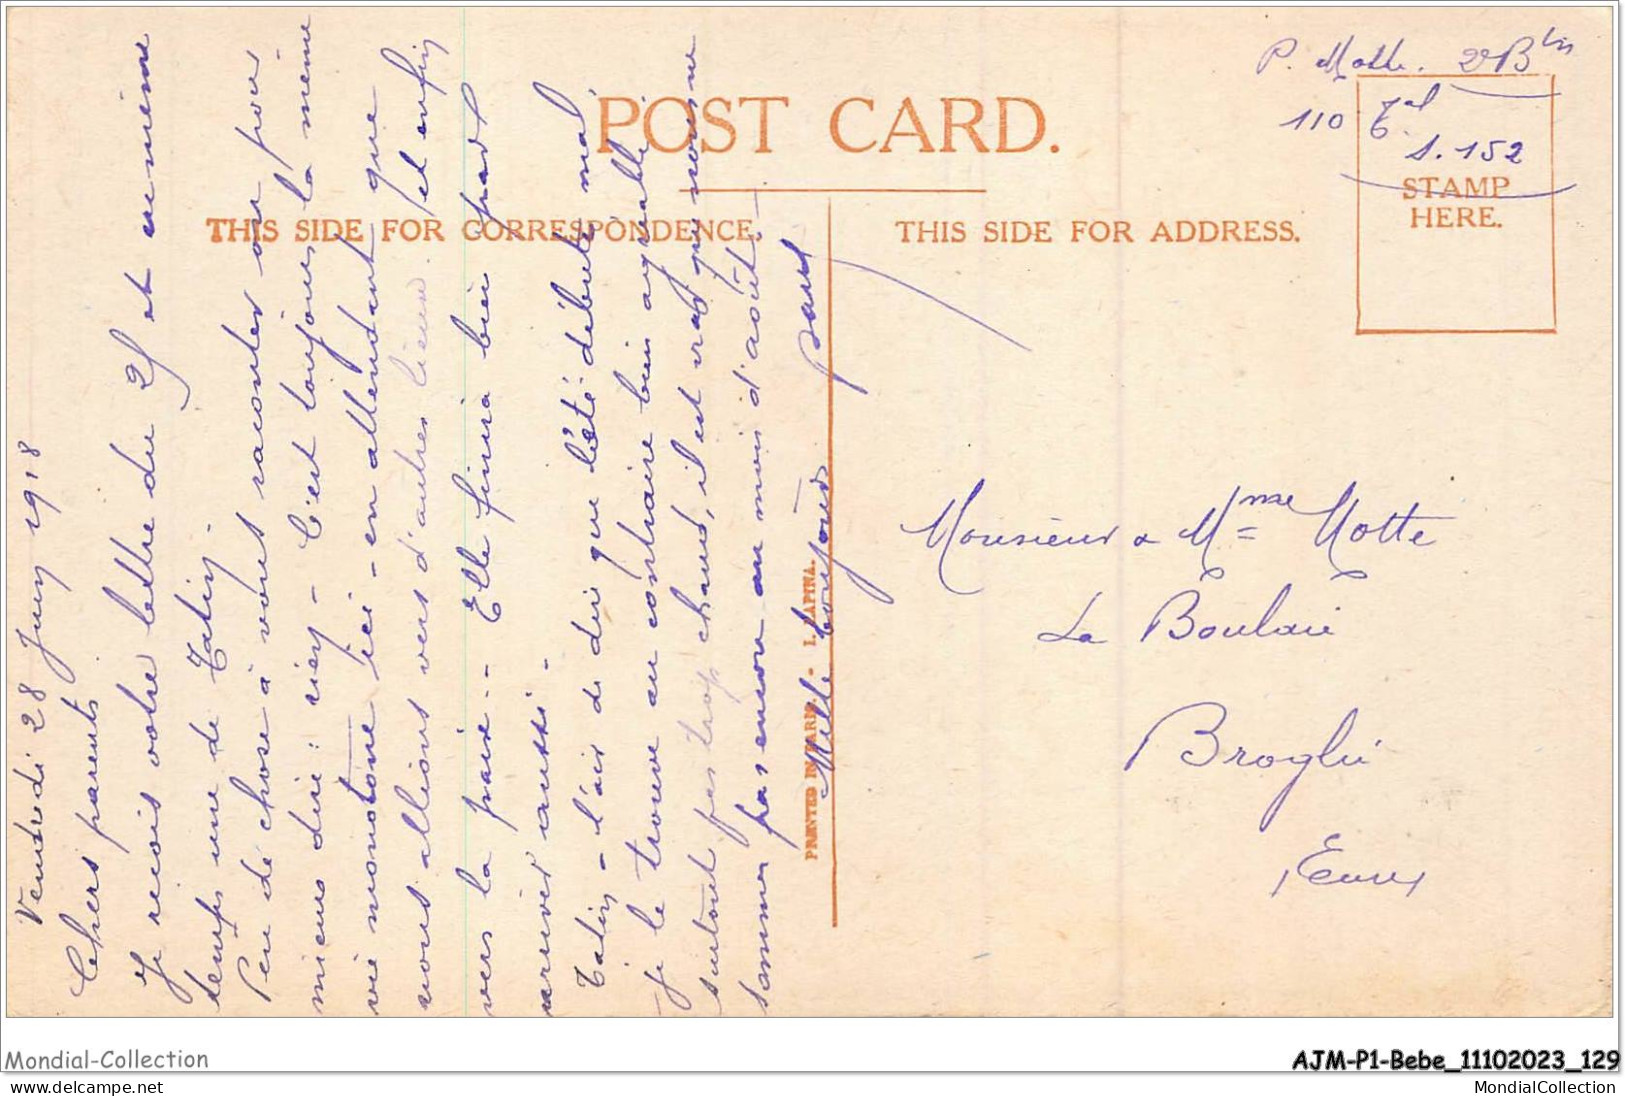 P. Motte. 2e Bis
110 Tal
S. 152
POST CARD.
STAMP
HERE.
THIS SIDE FOR CORRESPONDENCE.
THIS SIDE FOR ADDRESS.
Vendredi 28 Juin 1918
Chers parents
Je reçois votre lettre du 25 et en même
temps une de Tatin.
Peu de chose à vous raconter ou pour
mieux dire : rien - C'est toujours la même
vie monotone ici - en attendant que
nous allions vers d'autres lieux. et enfin
vers la paix.. Elle finira bien par
arriver aussi -
Tatin - l'air de dire que l'été débute mal,
je le trouve au contraire bien agréable
surtout pas trop chaud, il est vrai que nous ne
sommes pas encore au mois d'août.
Mille toujours
Paul
PRINTED IN PARIS. - I. LAPINA.
Monsieur & Mme Motte
La Boulaie
Broglie
Eure
Mondial-Collection
AJM-P1-Bebe_11102023_129
www.delcampe.net
MondialCollection